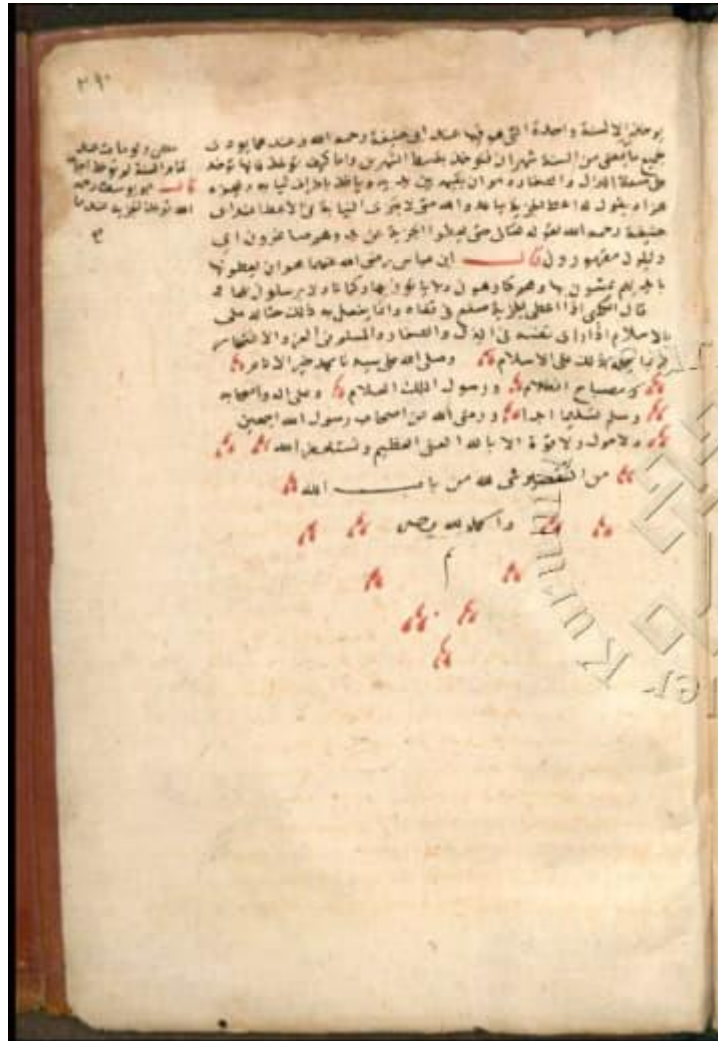 ٢٩٠
يوخذ الا لسنة واحدة التي هو فيها عند ابي حنيفة رحمه الله وعندهما يوخذ
جميع ما مضى من السنة شهران فتوخذ بقسط الشهرين واما كيف توخذ فانها توخذ
على صفة الذل والصغار وهو ان يقيمه بين يديه وياخذ
ويقول له اعط الجزية يا عدو الله حتى لا يجزى النيابة في الاعطا عند ابي
حنيفة رحمه الله لقوله تعالى حتى يعطوا الجزية عن يد وهم صاغرون اي
ذليلون مقهورون قال ابن عباس رضي الله عنهما هو ان يعطوها
بايديهم يمشون بها وهم كارهون ولا ياتون بها ركبانا ولا يرسلون بها
قال الكلبي اذا اعطى الجزية صفع في قفاه وانما يفعل به ذلك حثا له على
الاسلام اذا راى نفسه في الذل والصغار والمسلم في العز والافتخار
ربما يحمله ذلك على الاسلام وصلى الله على سيدنا محمد خير الانام
ومصباح الظلام ورسول الملك العلام وعلى اله واصحابه
وسلم تسليما ابدا ورضي الله عن اصحاب رسول الله اجمعين
ولا حول ولا قوة الا بالله العلي العظيم ونستغفر الله
من التقصير في من باب الله
والحمد لله
م
معين ولو مات عند
تمام السنة لم توخذ
قال ابو يوسف رحمه
الله توخذ الجزية عندنا